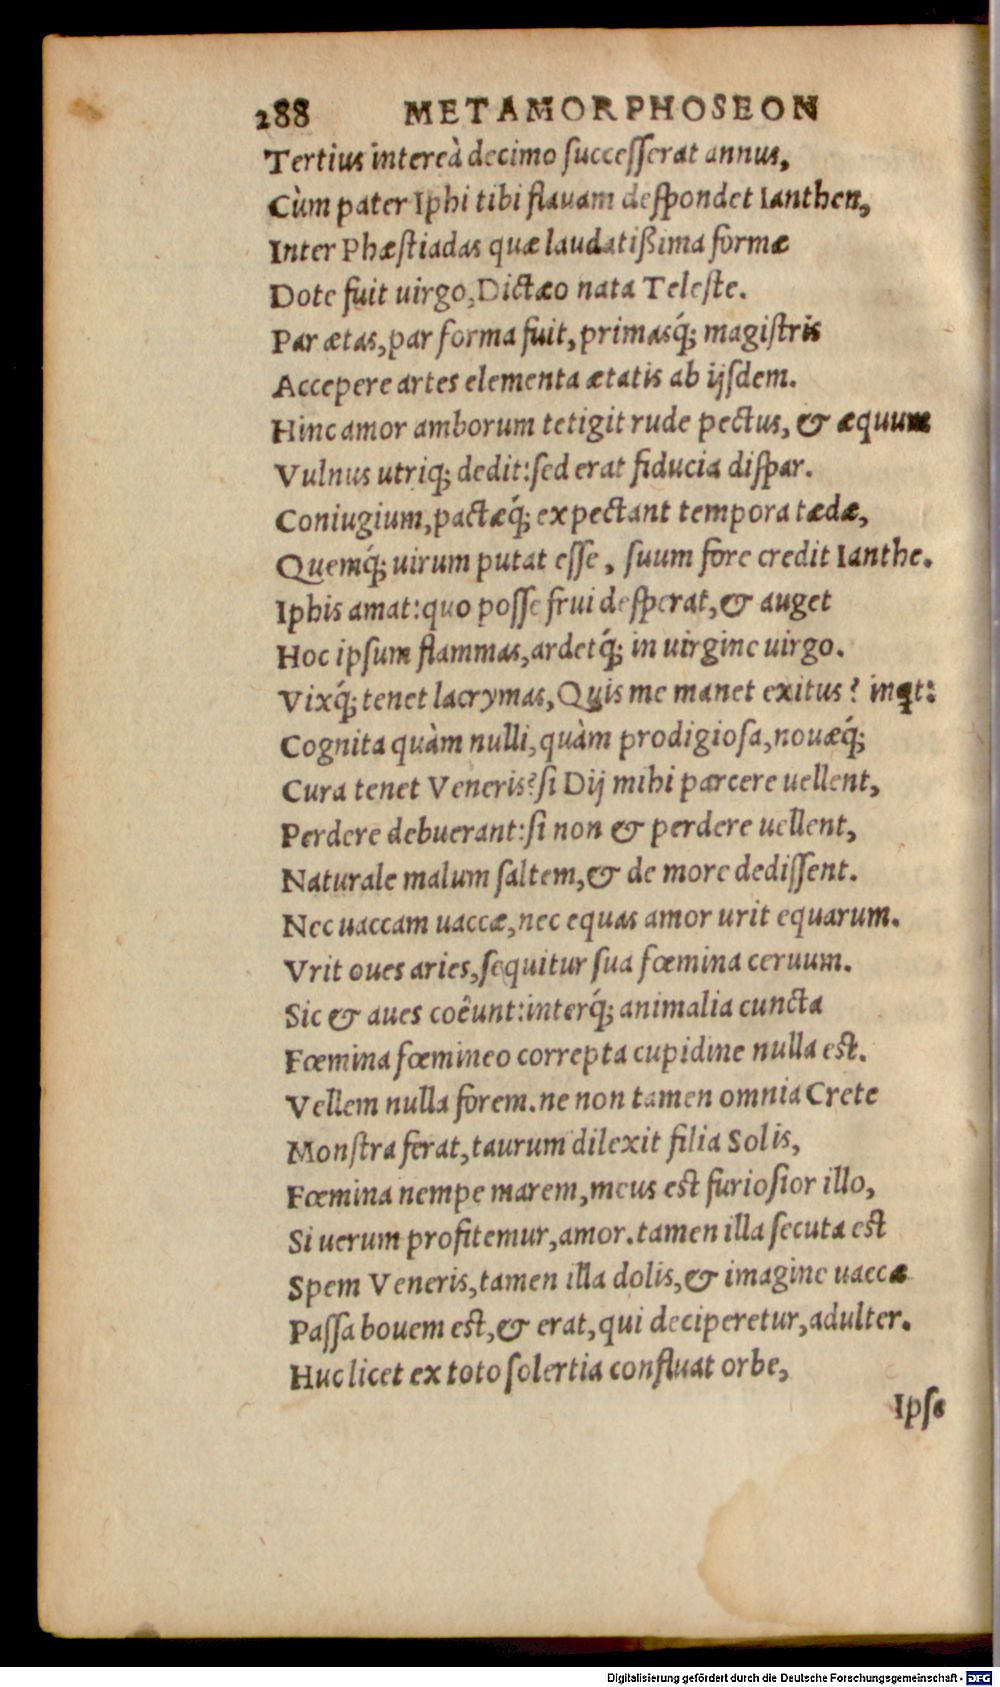 288 METAMORPHOSEON
Tertius intereà decimo ſucceſſerat annus,
Cùm pater Iphi tibi flauam deſpondet Ianthen,
Inter Phæſtiadas quæ laudatißima formæ
Dote fuit uirgo, Dictæo nata Teleſte.
Par ætas, par forma fuit, primasq́; magiſtris
Accepere artes elementa ætatis ab ijſdem.
Hinc amor amborum tetigit rude pectus, & æquum
Vulnus utriq; dedit: ſed erat fiducia diſpar.
Coniugium, pactæq́; expectant tempora tædæ,
Quemq́; uirum putat eſſe, ſuum fore credit Ianthe.
Iphis amat: quo poſſe frui deſperat, & auget
Hoc ipſum flammas, ardetq́; in uirgine uirgo.
Vixq́; tenet lacrymas, Quis me manet exitus? inqt:
Cognita quàm nulli, quàm prodigioſa, nouæq́;
Cura tenet Veneris? ſi Dij mihi parcere uellent,
Perdere debuerant: ſi non & perdere uellent,
Naturale malum ſaltem, & de more dediſſent.
Nec uaccam uaccæ, nec equas amor urit equarum.
Vrit oues aries, ſequitur ſua fœmina ceruum.
Sic & aues coêunt: interq́; animalia cuncta
Fœmina fœmineo correpta cupidine nulla eſt.
Vellem nulla forem. ne non tamen omnia Crete
Monſtra ferat, taurum dilexit filia Solis,
Fœmina nempe marem, meus eſt furioſior illo,
Si uerum profitemur, amor. tamen illa ſecuta eſt
Spem Veneris, tamen illa dolis, & imagine uaccæ
Paſſa bouem eſt, & erat, qui deciperetur, adulter.
Huc licet ex toto ſolertia confluat orbe,
Ipſe
Digitalisierung gefördert durch die Deutsche Forschungsgemeinschaft - DFG